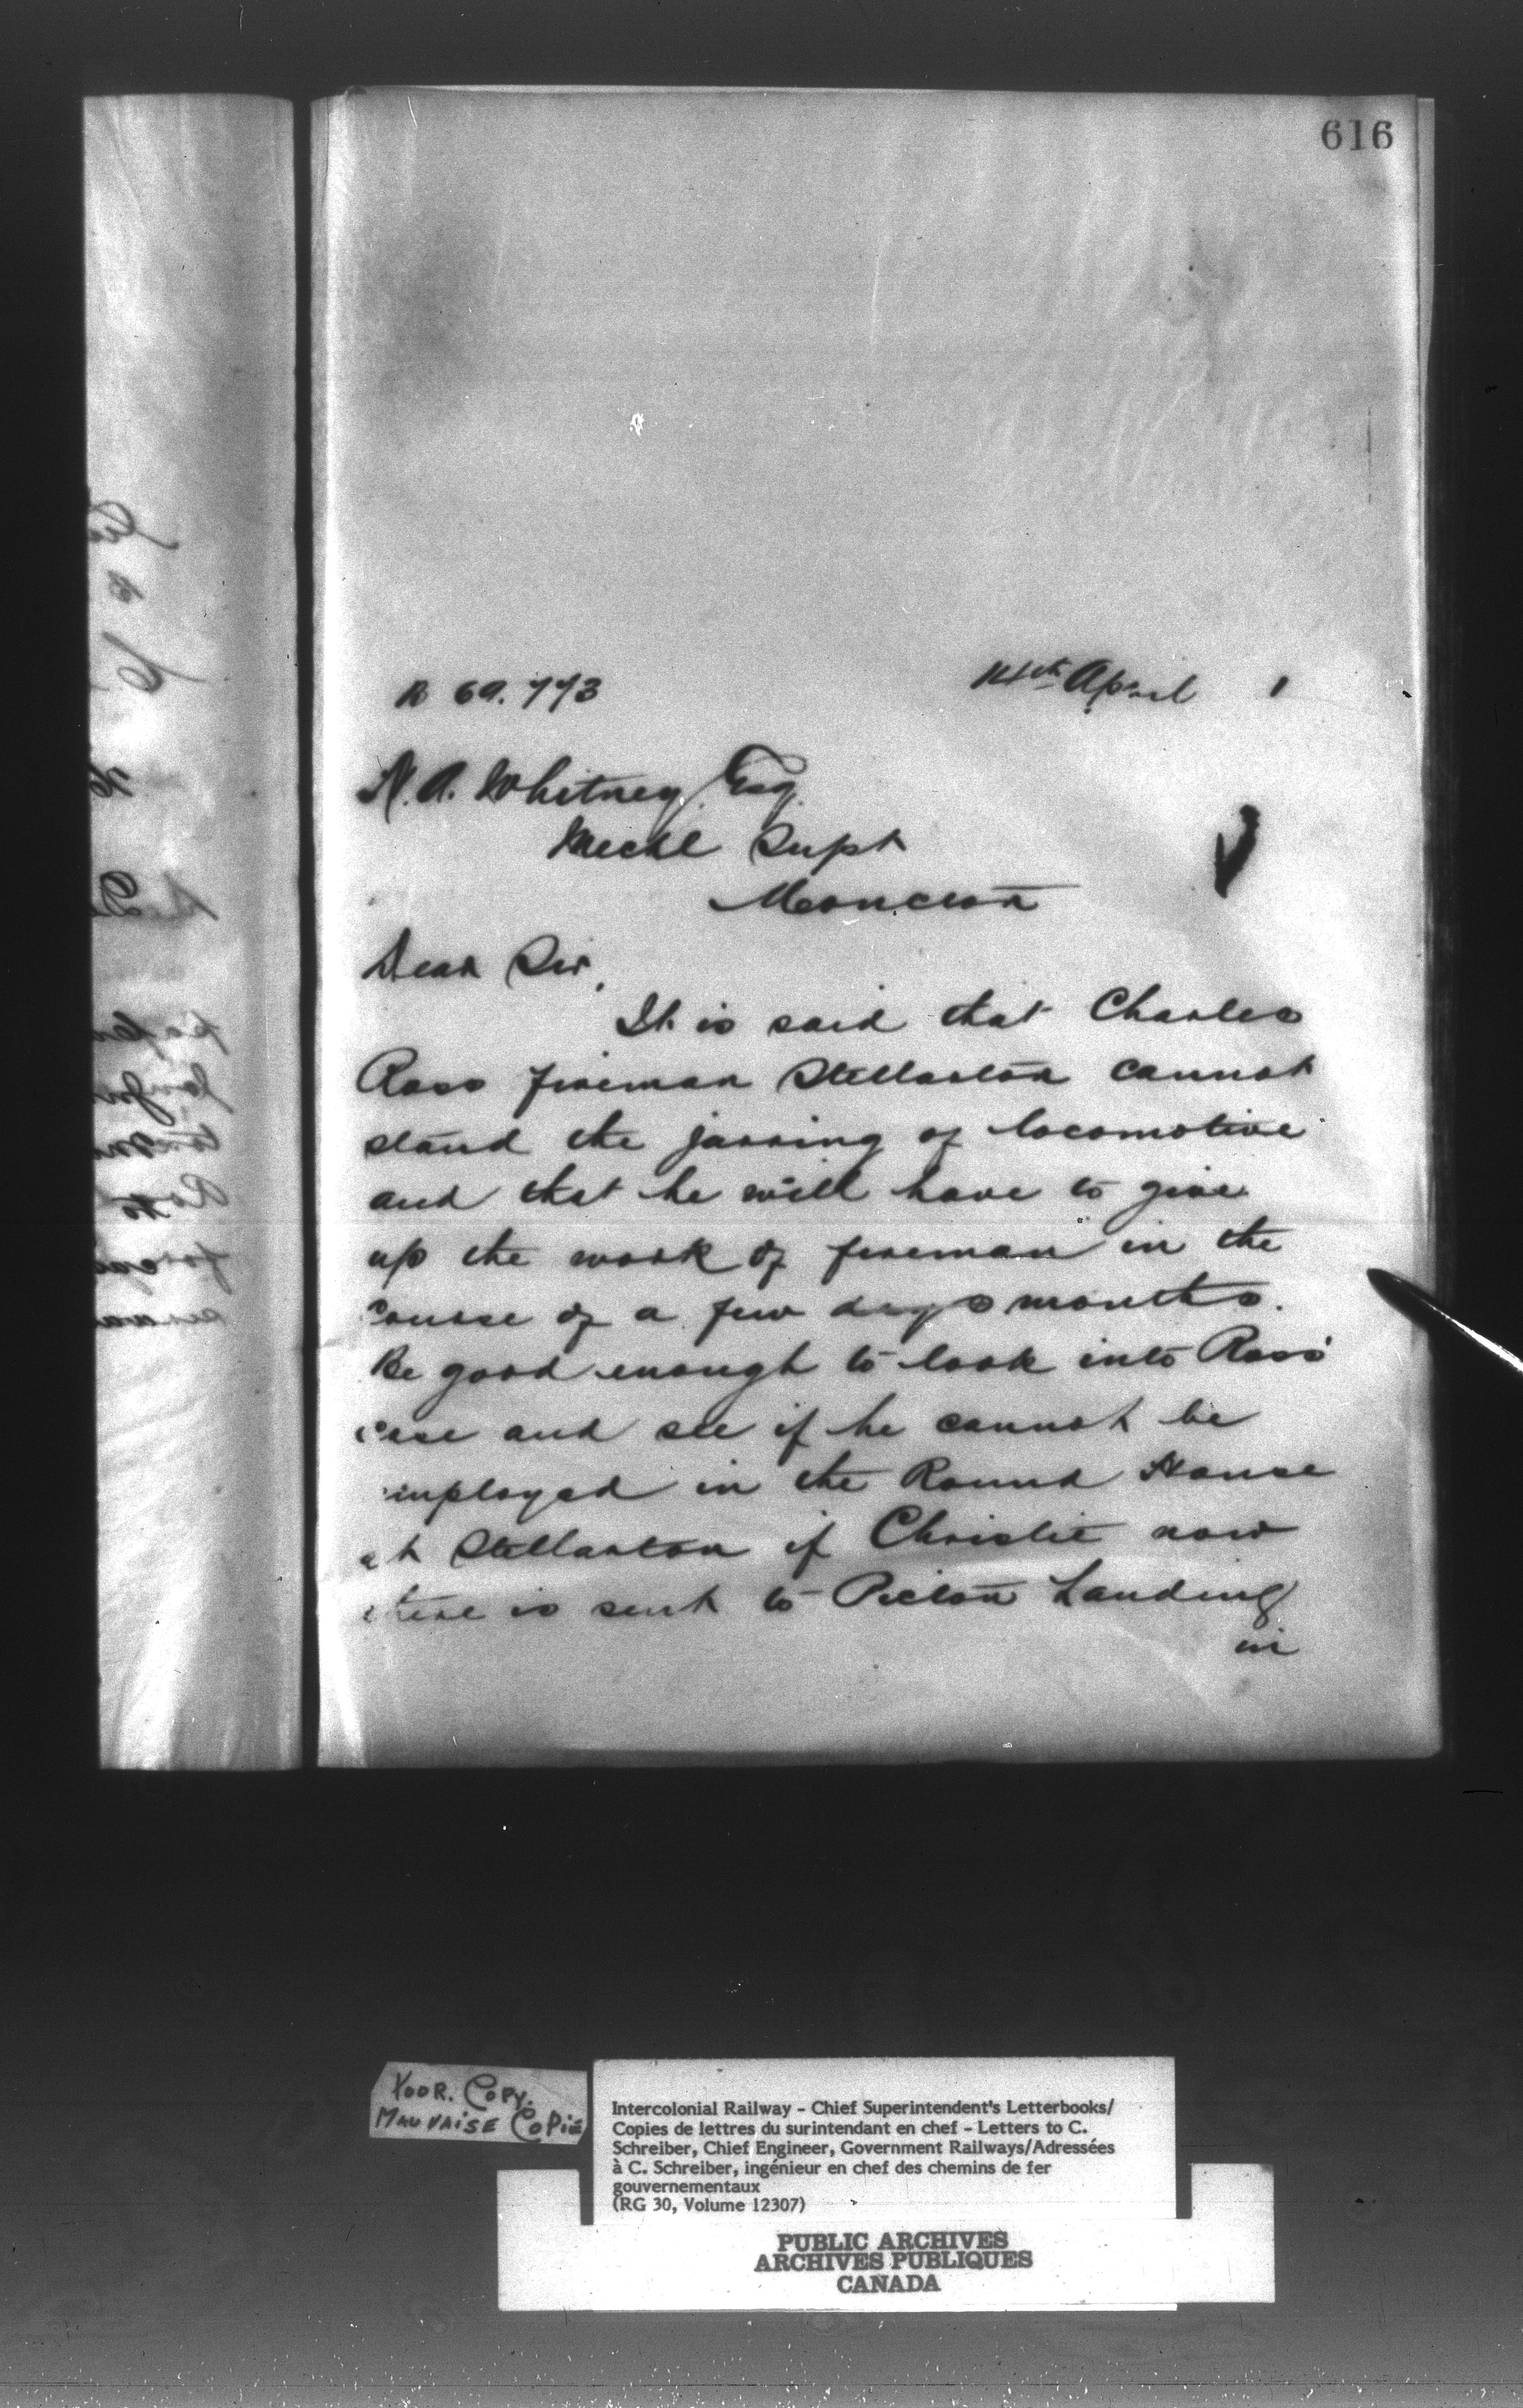 616
R 69.773 14th April 1
N. A. Whitney Esq.
Mechl Supt
Moncton
Dear Sir,
It is said that Charles
Ross fireman Stellarton cannot
stand the jarring of locomotive
and that he will have to give
up the work of fireman in the
course of a few days months.
Be good enough to look into Ross'
case and see if he cannot be
employed in the Round House
at Stellarton if Christie now
there is sent to Pictou Landing
in
POOR. COPY.
MAUVAISE COPIE
Intercolonial Railway - Chief Superintendent's Letterbooks/
Copies de lettres du surintendant en chef - Letters to C.
Schreiber, Chief Engineer, Government Railways/Adressées
à C. Schreiber, ingénieur en chef des chemins de fer
gouvernementaux
(RG 30, Volume 12307)
PUBLIC ARCHIVES
ARCHIVES PUBLIQUES
CANADA